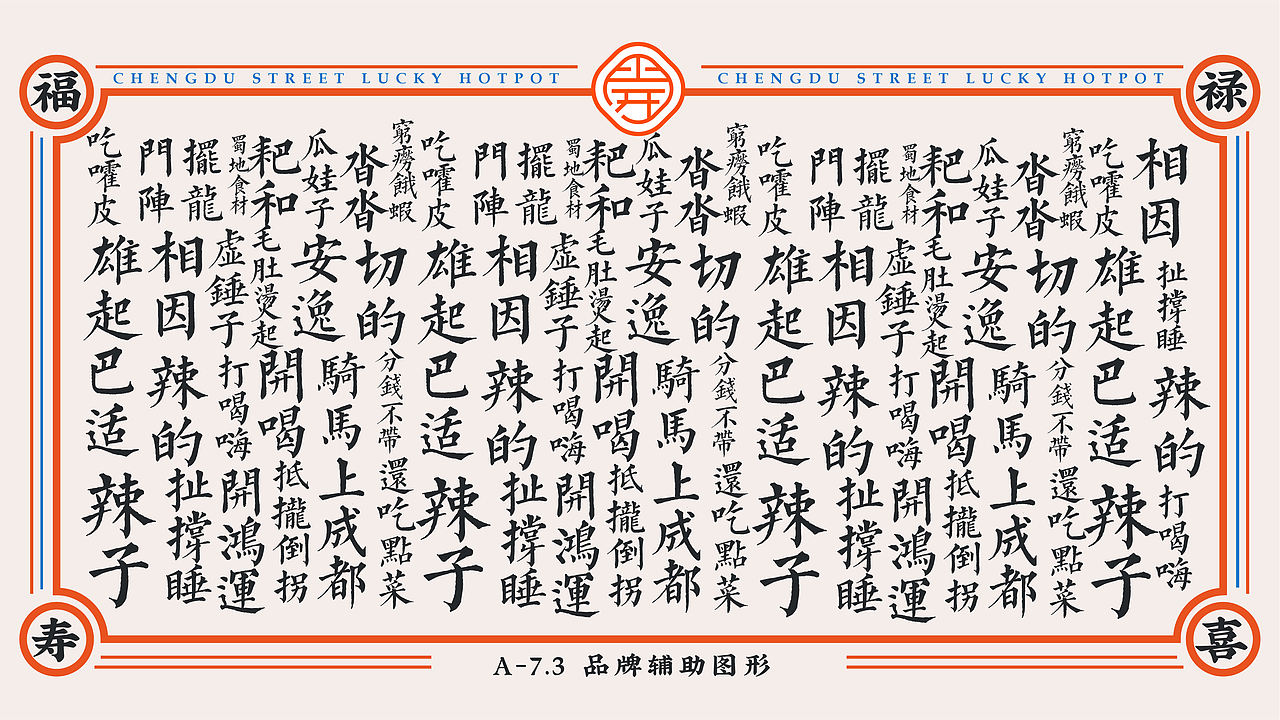 福
CHENGDU STREET LUCKY HOTPOT
CHENGDU STREET LUCKY HOTPOT
禄
相因
扯撐睡
辣的
打喝嗨
吃嚯皮
雄起
巴适
辣子
窮癆餓蝦
沓沓
切的
分錢不帶
還吃點菜
瓜娃子
安逸
騎馬
上成都
耙和
毛肚燙起
開喝
抵攏倒拐
蜀地食材
虛錘子
打喝嗨
開鴻運
擺龍
門陣
相因
辣的
扯撐睡
吃嚯皮
雄起
巴适
辣子
窮癆餓蝦
沓沓
切的
分錢不帶
還吃點菜
瓜娃子
安逸
騎馬
上成都
耙和
毛肚燙起
開喝
抵攏倒拐
蜀地食材
虛錘子
打喝嗨
開鴻運
擺龍
門陣
相因
辣的
扯撐睡
吃嚯皮
雄起
巴适
辣子
窮癆餓蝦
沓沓
切的
分錢不帶
還吃點菜
瓜娃子
安逸
騎馬
上成都
耙和
毛肚燙起
開喝
抵攏倒拐
蜀地食材
虛錘子
打喝嗨
開鴻運
擺龍
門陣
相因
辣的
扯撐睡
吃嚯皮
雄起
巴适
辣子
寿
A-7.3 品牌辅助图形
喜